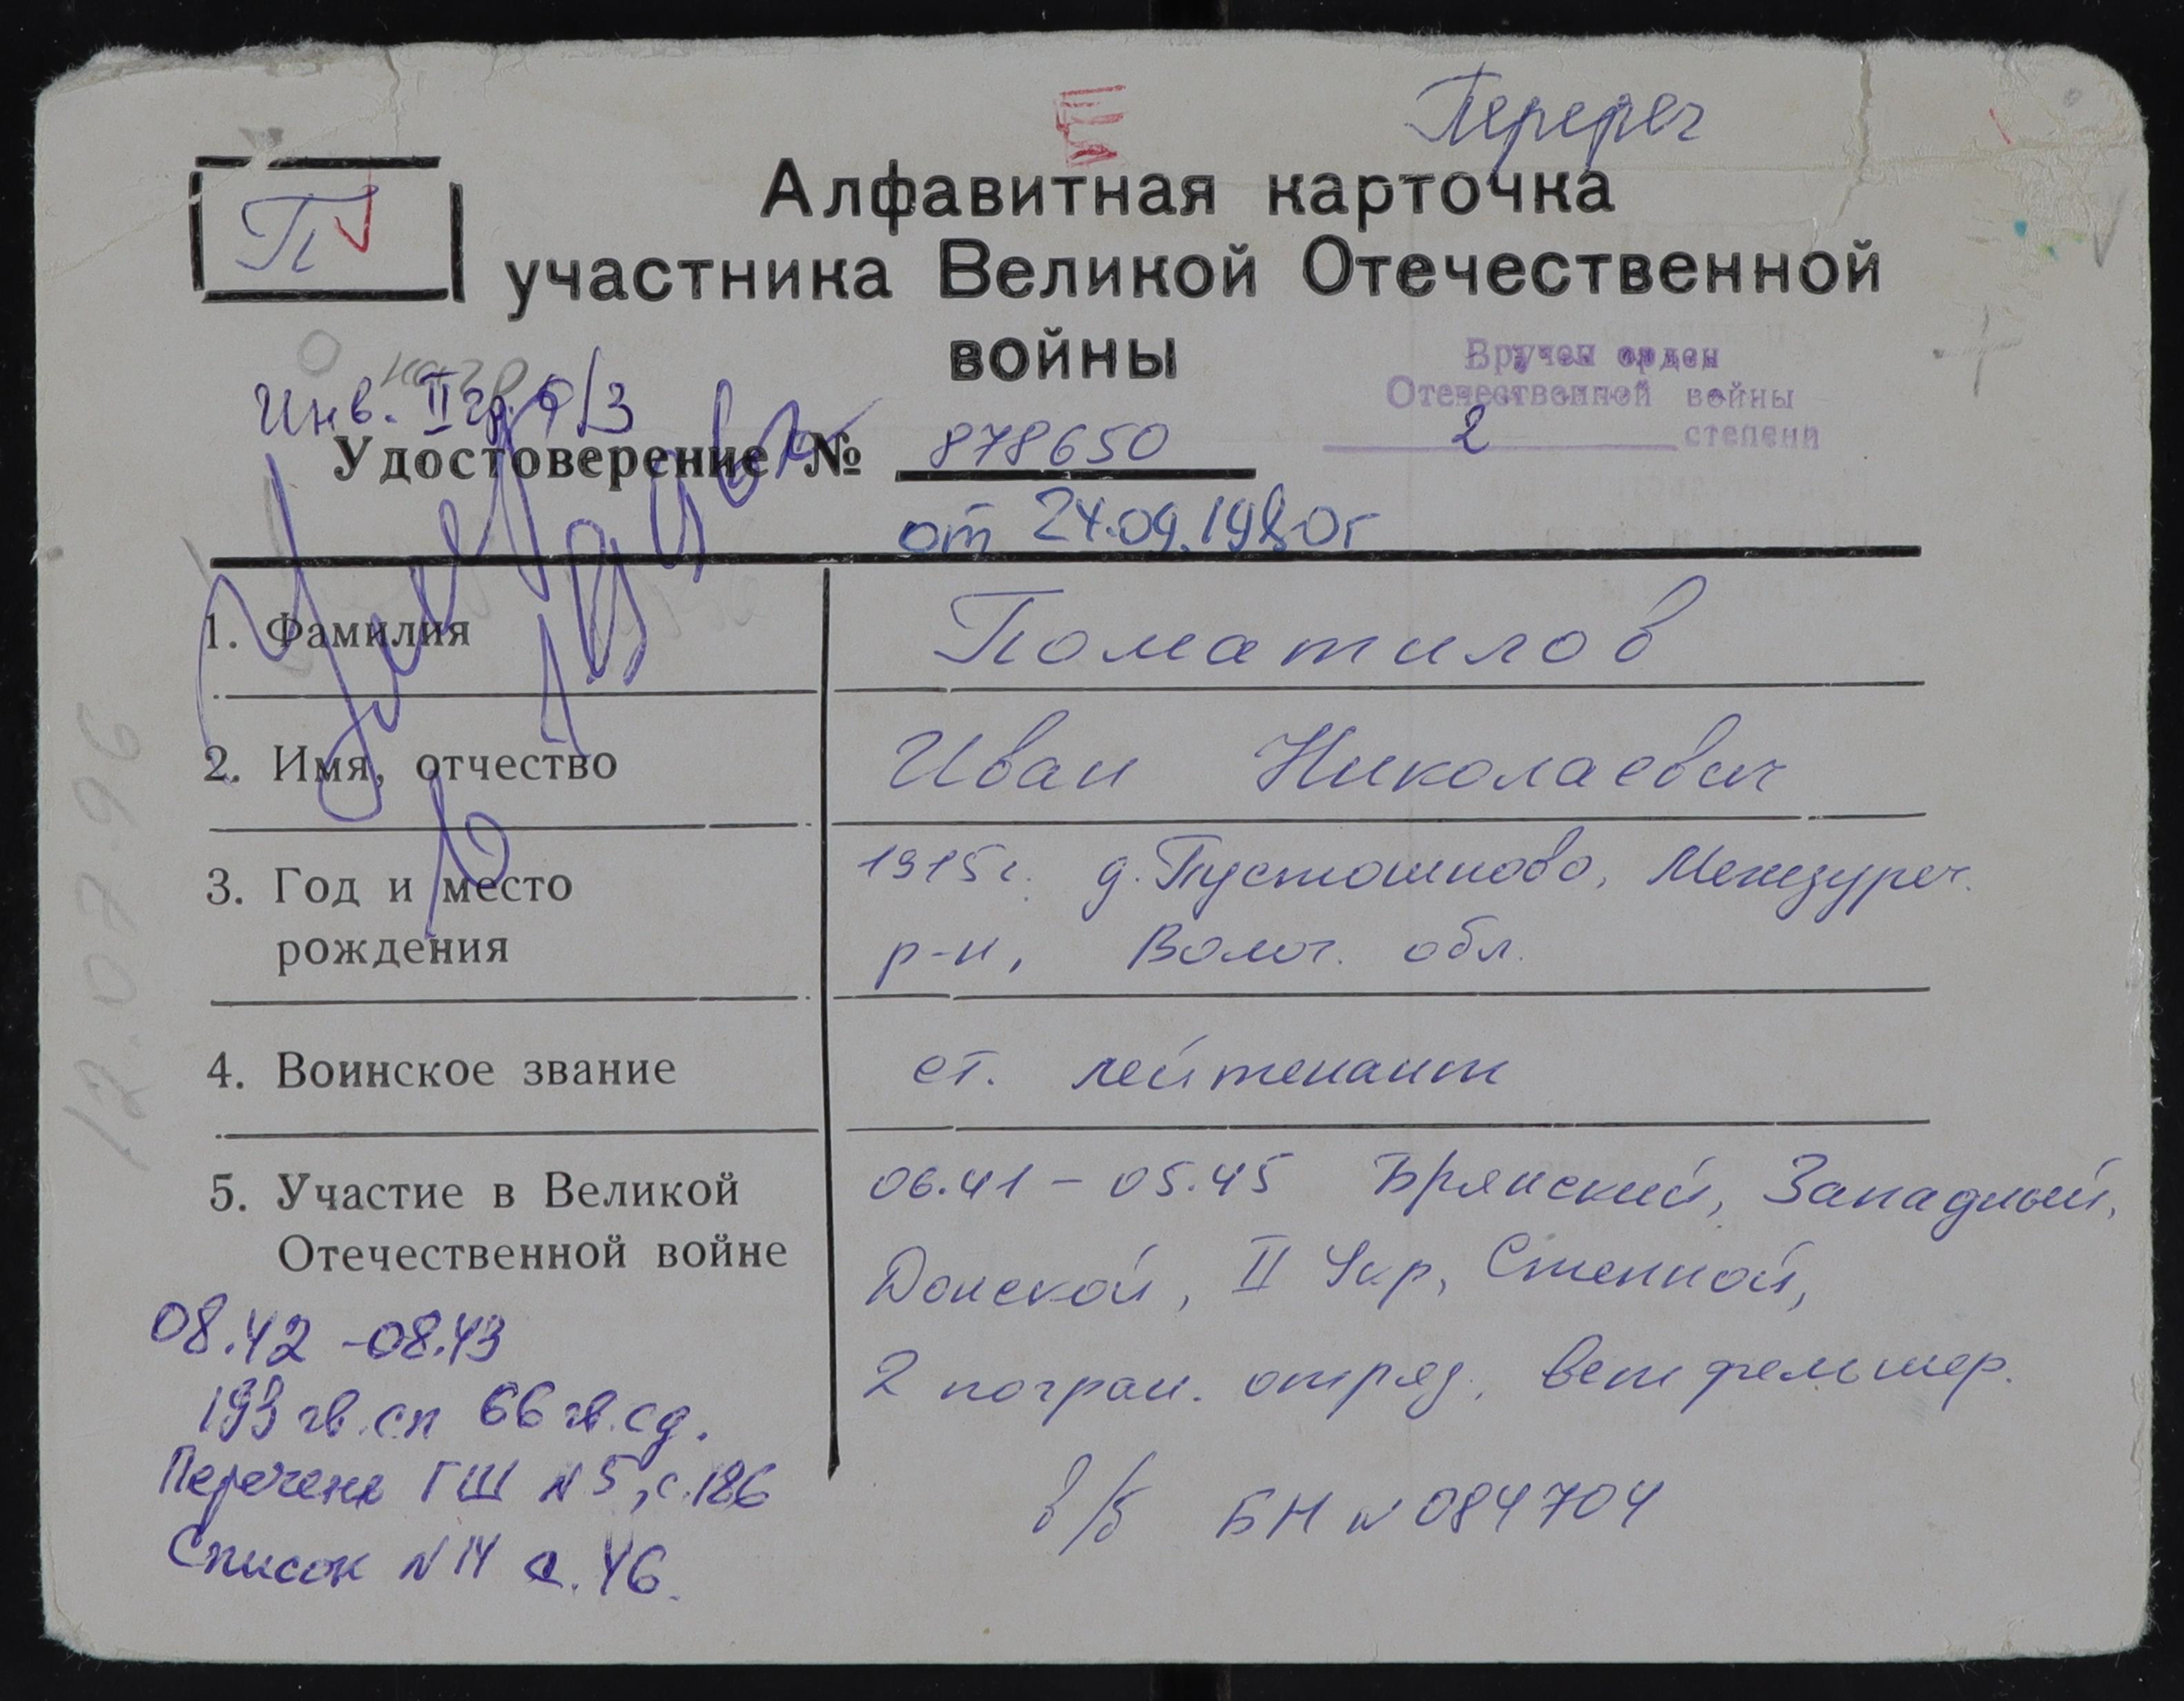 Перерег
П
Алфавитная карточка
участника Великой Отечественной
войны
Вручен орден
Отечественной войны
2 степени
Инв. II гр. б/з
Удостоверение № 878650
от 24.09.1980г
1. Фамилия Поматилов
2. Имя, отчество Иван Николаевич
3. Год и место 1915г. д. Пустошново, Междуреч.
рождения р-н, Волог. обл.
4. Воинское звание ст. лейтенант
5. Участие в Великой 06.41 – 05.45 Брянский, Западный,
Отечественной войне Донской, II Укр, Степной,
08.42 – 08.43 2 погран. отряд, ветфельшер.
193 гв.сп 66 гв.сд.
Перечень ГШ N 5, с.186 в/б БН N 084704
Список N 14 с. 46.
12.07.96